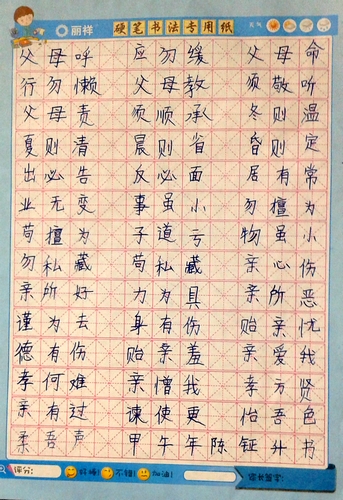 丽祥 硬笔书法专用纸 天气
父母呼 应勿缓 父母命
行勿懒 父母教 须敬听
父母责 须顺承 冬则温
夏则清 晨则省 昏则定
出必告 反必面 居有常
业无变 事虽小 勿擅为
苟擅为 子道亏 物虽小
勿私藏 苟私藏 亲心伤
亲所好 力为具 亲所恶
谨为去 身有伤 贻亲忧
德有伤 贻亲羞 亲爱我
孝何难 亲憎我 孝方贤
亲有过 谏使更 怡吾色
柔吾声 甲午年陈钲升书
评分: 好棒! 不错! 加油! 家长签字: